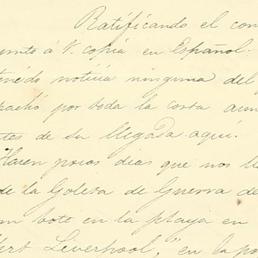 Ratificando el con
junto á V. copia en Español.
tenido noticia ninguna del
pachó por toda la costa aun
tes de su llegada aquí.
Hacen pocos dias que nos ll
de la Goleta de Guerra de
un bote en la playa en
bert Leverhool," en la po